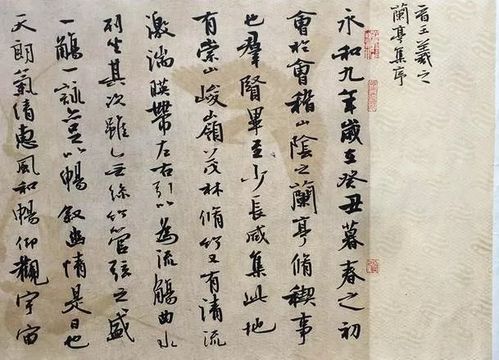 晉王羲之
蘭亭集序
永和九年歲在癸丑暮春之初
會於會稽山陰之蘭亭脩禊事
也羣賢畢至少長咸集此地
有崇山峻嶺茂林脩竹又有清流
激湍暎帶左右引以為流觴曲水
列坐其次雖無絲竹管弦之盛
一觴一詠亦足以暢叙幽情是日也
天朗氣清惠風和暢仰觀宇宙